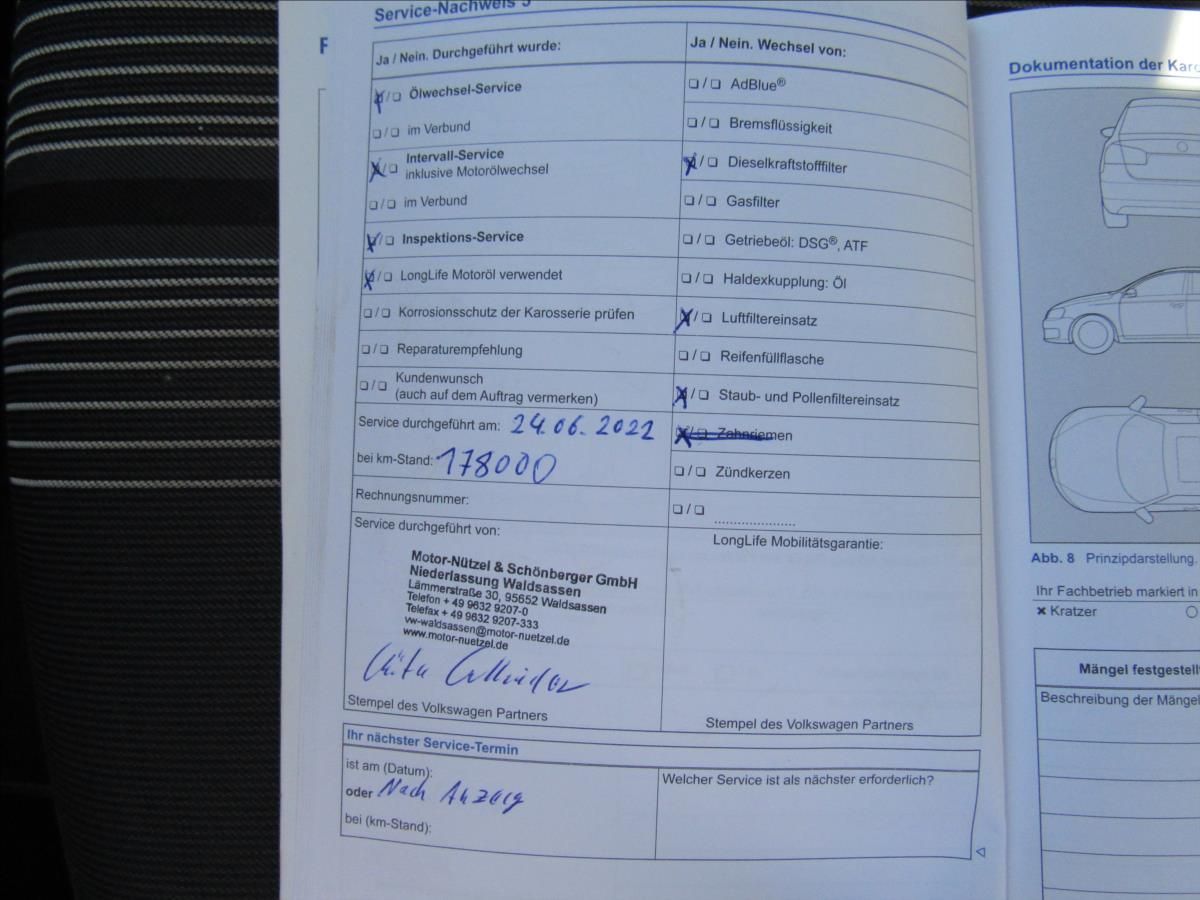 Service-Nachweis
F
Ja / Nein. Durchgeführt wurde:
❏/❏ Ölwechsel-Service
❏/❏ im Verbund
❏/❏ Intervall-Service
inklusive Motorölwechsel
❏/❏ im Verbund
❏/❏ Inspektions-Service
❏/❏ LongLife Motoröl verwendet
❏/❏ Korrosionsschutz der Karosserie prüfen
❏/❏ Reparaturempfehlung
❏/❏ Kundenwunsch
(auch auf dem Auftrag vermerken)
Service durchgeführt am: 24.06.2022
bei km-Stand: 178000
Rechnungsnummer:
Service durchgeführt von:
Motor-Nützel & Schönberger GmbH
Niederlassung Waldsassen
Lämmerstraße 30, 95652 Waldsassen
Telefon + 49 9632 9207-0
Telefax + 49 9632 9207-333
vw-waldsassen@motor-nuetzel.de
www.motor-nuetzel.de
Stempel des Volkswagen Partners
Ja / Nein. Wechsel von:
❏/❏ AdBlue®
❏/❏ Bremsflüssigkeit
❏/❏ Dieselkraftstofffilter
❏/❏ Gasfilter
❏/❏ Getriebeöl: DSG®, ATF
❏/❏ Haldexkupplung: Öl
❏/❏ Luftfiltereinsatz
❏/❏ Reifenfüllflasche
❏/❏ Staub- und Pollenfiltereinsatz
❏/❏ Zahnriemen
❏/❏ Zündkerzen
❏/❏ ....................
LongLife Mobilitätsgarantie:
Stempel des Volkswagen Partners
Ihr nächster Service-Termin
ist am (Datum):
oder Nach Anzeig
bei (km-Stand):
Welcher Service ist als nächster erforderlich?
Dokumentation der Karo
Abb. 8 Prinzipdarstellung.
Ihr Fachbetrieb markiert in
× Kratzer
Mängel festgestell
Beschreibung der Mängel